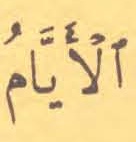 ٱلْأَيَّامُ